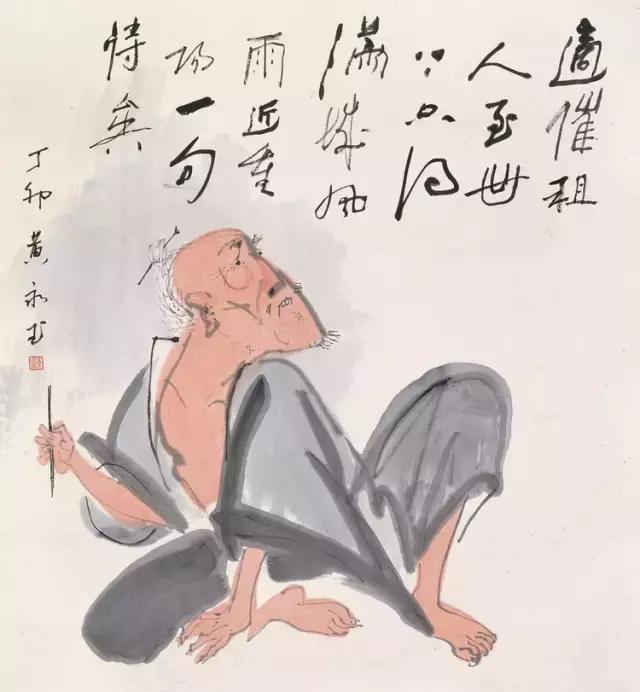 適催租
人至世
只得
滿城風
雨近重
陽一句
詩矣
丁卯黄永玉